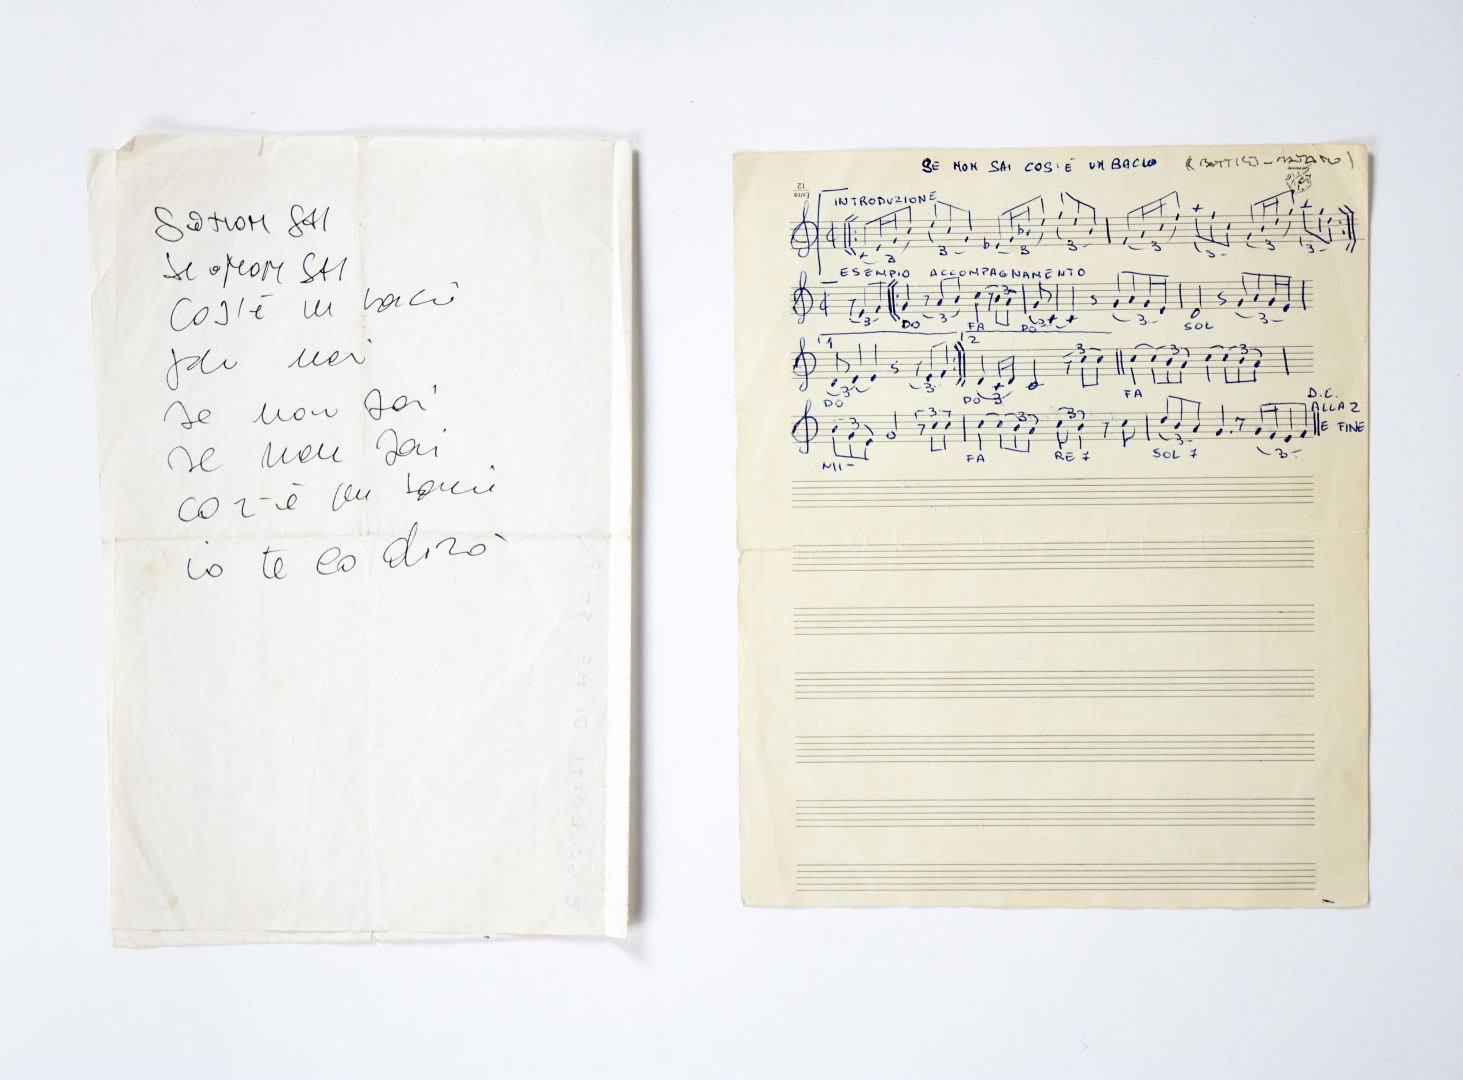 Se non SAI
Se non SAI
COS'è un bacio
se non sai
se non sai
cos'è un bacio
io te lo dirò
E SCORDATI DI ME SE PUOI
SE NON SAI COS'È UN BACIO (BATTISTI-
12
INTRODUZIONE
3 3 3 3 3 3 3 3
ESEMPIO ACCOMPAGNAMENTO
3 3 3 3 3 3
DO FA DO SOL
1 2
3 3 3 3 3 3
DO DO FA
D.C.
ALLA 2
E FINE
3 3 3 3 3 3
MI- FA RE 7 SOL 7